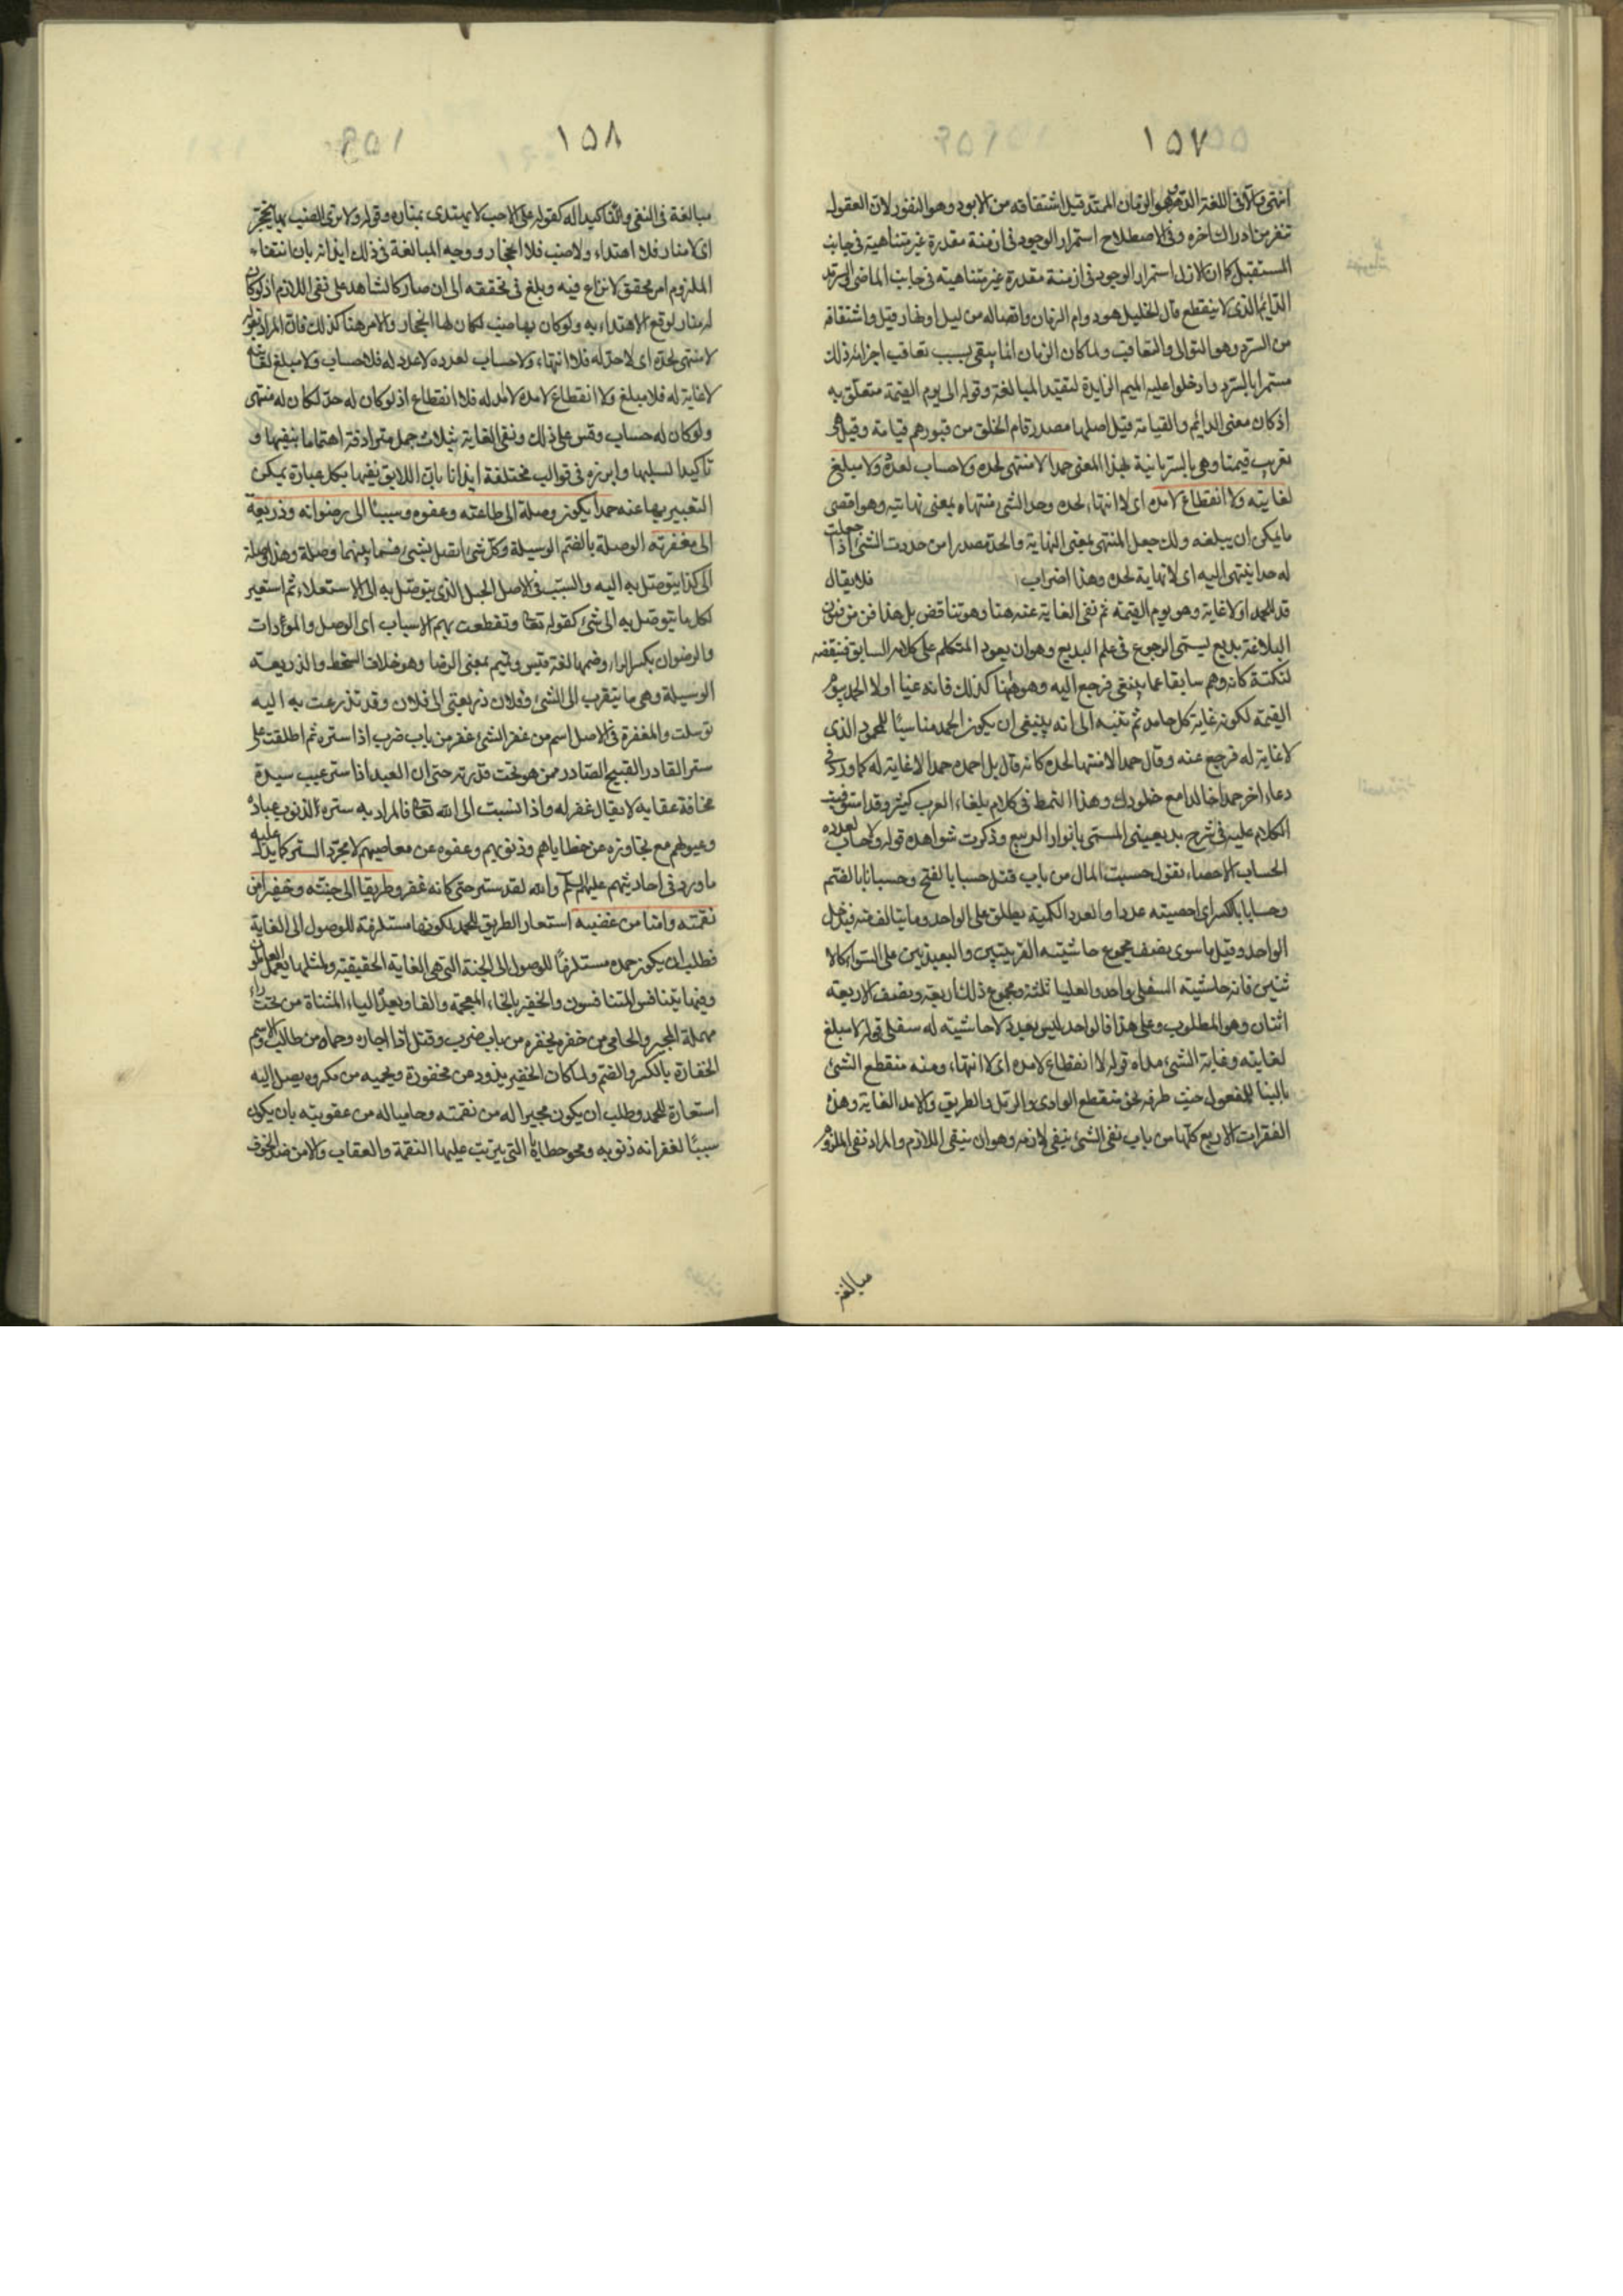 ١٥٧
انتهى والابد فى اللغة الدهر وهو الزمان الممتد قيل اشتقاقه من الابود وهو النفور لان العقول
تنفر من ادراك اخره وفى الاصطلاح استمرار الوجود فى ازمنة مقدرة غير متناهية فى جانب
المستقبل كما ان الازل استمرار الوجود فى ازمنة مقدرة غير متناهية فى جانب الماضى والسرمد
الدايم الذى لا ينقطع قال الخليل هو دوام الزمان واتصاله من ليل او نهار قيل واشتقاقه
من السرد وهو التوالى والتعاقب ولما كان الزمان انما يبقى بسبب تعاقب اجزائه ذلك
مستمرا بالسرد وادخلوا عليه الميم الزايدة لتفيد المبالغة وقوله الى يوم القيمة متعلق به
اذ كان معنى الدايم والقيامة قيل اصلها مصدر قام الخلق من قبورهم قيامة وقيل هى
تعريب قيمتا وهى بالسريانية بهذا المعنى حمدا لا منتهى لحده ولا حساب لعدده ولا مبلغ
لغايته ولا انقطاع لامده اى لا انتهاء لحده وحد الشى منتهاه بمعنى نهايته وهو اقصى
ما يمكن ان يبلغه ولك جعل المنتهى بمعنى النهاية والحد مصدرا من حددت الشئ اذا جعلت
له حدا ينتهى اليه اى لا نهاية لحده وهذا اضراب فلا يقال
قد للحمد اولا غاية وهو يوم القيمة ثم نفى الغاية عنه هنا وهو تناقض بل هذا فن من فنون
البلاغة بديع يسمى الرجوع فى علم البديع وهو ان يعود المتكلم على كلامه السابق فينقضه
لنكتة كانه وهم سابقا عما ينبغى فرجع اليه وهو ههنا كذلك فانه غيا اولا الحمد بيوم
القيمة لكونه غاية كل حامد ثم تنبه الى انه ينبغى ان يكون الحمد مناسبًا للمحمود الذى
لا غاية له فرجع عنه وقال حمدا لا منتهى لحده كانه قال بل احمده حمدا لا غاية له كما ورد فى
دعاء اخر حمدا خالدا مع خلودك وهذا النمط فى كلام بلغاء العرب كثير وقد استوفيت
الكلام عليه فى شرح بديعيتى المسمى بانوار الربيع وذكرت شواهده قوله ولا حساب لعدده
الحساب الاحصاء تقول حسبت المال من باب قتل حسبا بالفتح وحسبانا بالضم
وحسابا بالكسر اى احصيته عددا والعدد الكمية يطلق على الواحد وما يتالف منه فيدخل
الواحد وقيل ما سوى بضعف مجموع حاشيته القريبتين والبعيدتين على السواء كالا
ثنين فانه حاشيته السفلى واحد والعليا ثلثة ومجموع ذلك اربعة ونصف الاربعة
اثنان وهو المطلوب وعلى هذا فالواحد ليس بعدد لا حاشيته له سفلى قوله لا مبلغ
لغايته وغاية الشئ مداه قوله لا انقطاع لامده اى لا انتهاء ومنه منقطع الشئ
بالبنا للمفعول حيث طرفه نحو منقطع الوادى والرمل والطريق والامد الغاية وهذه
الفقرات الاربع كلها من باب نفى الشئ بنفى لازمه وهو ان ينفى اللازم والمراد نفى الملزوم
مبالغة
١٥٨
مبالغة فى النفى والتاكيدا له كقوله على لاحب لا يهتدى بمناره وقوله ولا ترى الضب بها ينجحر
اى لا منار فلا اهتداء ولا ضب فلا انجحار ووجه المبالغة فى ذلك ايذانه بان انتفاء
الملزوم امر محقق لا نزاع فيه وبلغ فى تحققه الى ان صار كالشاهد على نفى اللازم اذ لو كان
له منار لوقع الاهتداء به ولو كان بها ضب لكان لها انجحار والامر هنا كذلك فان المراد بقوله
لا منتهى لحده اى لا حد له فلا انتهاء ولا حساب لعدده لا عدد له فلا حساب ولا مبلغ لغايته
لا غاية له فلا مبلغ ولا انقطاع لامده لا امد له فلا انقطاع اذ لو كان له حد لكان له منتهى
ولو كان له حساب وقس على ذلك ونفى الغاية بثلاث جمل مترادفة اهتماما بنفيها و
تاكيدا لسلبها وابرزه فى قوالب مختلفة ايذانا بان اللايق نفيها بكل عبارة يمكن
التعبير بها عنه حمدا يكون وصلة الى طاعته وعفوه وسببًا الى رضوانه وذريعة
الى مغفرته الوصلة بالضم الوسيلة وكل شئ اتصل بشئ فما بينهما وصلة وهذا وصلة
الى كذا يتوصل به اليه والسبب فى الاصل الحبل الذى يتوصل به الى الاستعلاء ثم استعير
لكل ما يتوصل به الى شئ كقوله تعا وتقطعت بهم الاسباب اى الوصل والمودات
والرضوان بكسر الراء وضمها لغة قيس وتميم بمعنى الرضا وهو خلاف السخط والذريعة
الوسيلة وهى ما يتقرب الى الشئ وفلان ذريعتى الى فلان وقد تذرعت به اليه
توسلت والمغفرة فى الاصل اسم من غفر الشئ غفر من باب ضرب اذا ستره ثم اطلقت على
ستر القادر القبيح الصادر ممن هو تحت قدرته حتى ان العبد اذا ستر عيب سيده
مخافة عقابه لا يقال غفر له واذا نسبت الى الله تعا فالمراد به ستره الذنوب عباده
وعيوبهم مع تجاوزه عن خطاياهم وذنوبهم وعفوه عن معاصيهم لا مجرد الستر كما يدل عليه
ما ورد فى احاديثهم عليهم السلم والله لقد ستر حتى كانه غفر وطريقا الى جنته وخفيرا من
نقمته وامنا من غضبه استعار الطريق للحمد لكونها مستلزمة للوصول الى الغاية
فطلب ان يكون حمده مستلزمًا للوصول الى الجنة التى هى الغاية الحقيقية ولمثلها يعمل العاملون
وفيها يتنافس المتنافسون والخفير بالخاء المعجمة والفا وبعد الياء المثناة من تحت راء
مهملة المجير والحامى من خفره يخفره من باب ضرب وقتل اذا اجاره وحماه من طالب والاسم
الخفارة بالكسر والضم ولما كان الخفير يذود عن مخفوره ويحميه من مكروه يصل اليه
استعاره للحمد وطلب ان يكون مجيرا له من نقمته وحاميا له من عقوبته بان يكون
سببًا لغفرانه ذنوبه ومحو خطاياه التى يترتب عليها النقمة والعقاب والامن ضد الخوف